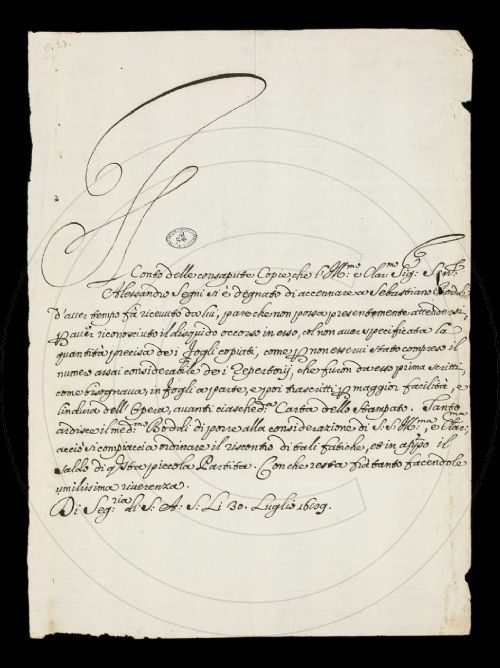 Il
Conto delle consapute Copie, che l'Ill.mo e Clar.mo Sig: Sen:
Alessandro Segni si è degnato di accennare a Sebastiano Bidoli
d'aver tempo fà ricevuto da lui, pare che non possa presentemente attendersi,
p aver riconosciuto il disquido occorso in esso, col non aver specificata la
quantità precisa de i fogli copiati, come p non esservi stato compreso il
numero assai considerabile de i Repertorij, che furon da esso prima scritti,
come bisognava, in fogli a parte, e poi trascritti p maggior facilità, e
lindura dell'Opera, avanti ciasched.a Carta dello Stampato. Tanto
ardisce il med.mo Bidoli di porre alla considerazione di S. S. Ill.ma, e Clar.ma,
acciò si compiaccia ordinare il riscontro di tali fatiche, et in appo il
Saldo di qsta piccola Partita. Con che resta frà tanto facendole
umilissima riverenza.
Di Seg.ria di S: A: S: Li 30. Luglio 1689.